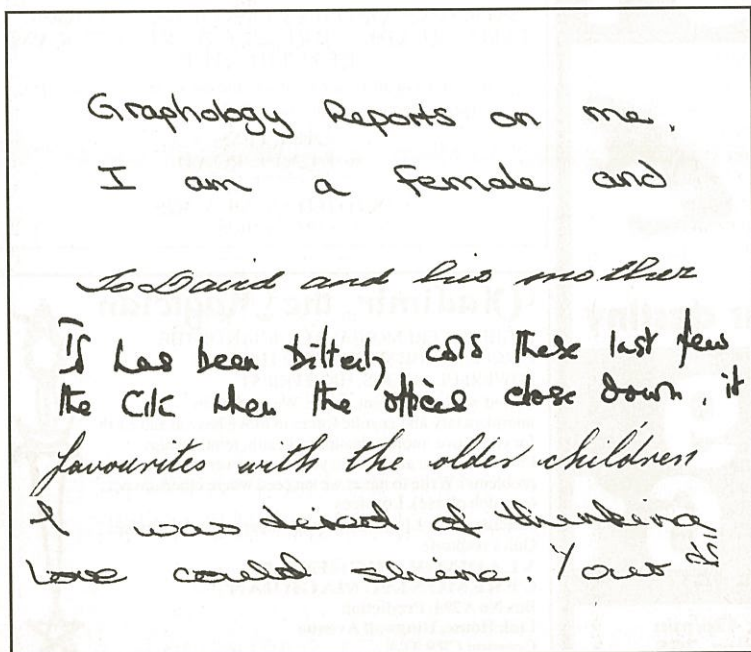 Graphology Reports on me.
I am a female and
To David and his mother
It has been bitterly cold these last few
the City when the offices close down, it
favourites with the older children
I was tired of thinking
Love could shine. Your